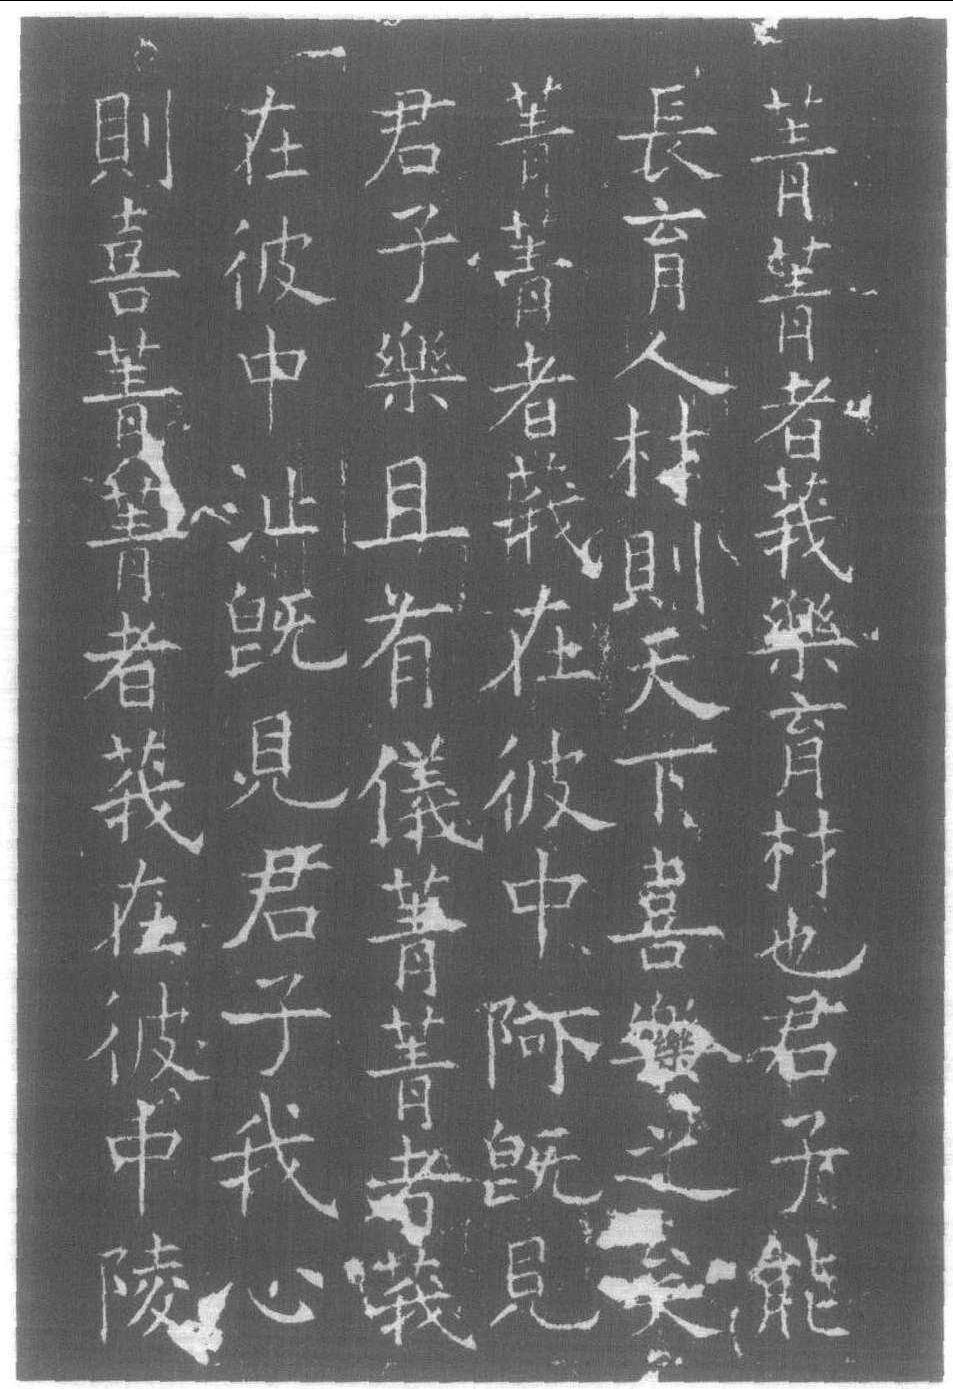 菁菁者莪樂育材也君子能
長育人材則天下喜樂之矣
菁菁者莪在彼中阿既見
君子樂且有儀菁菁者莪
在彼中沚既見君子我心
則喜菁菁者莪在彼中陵